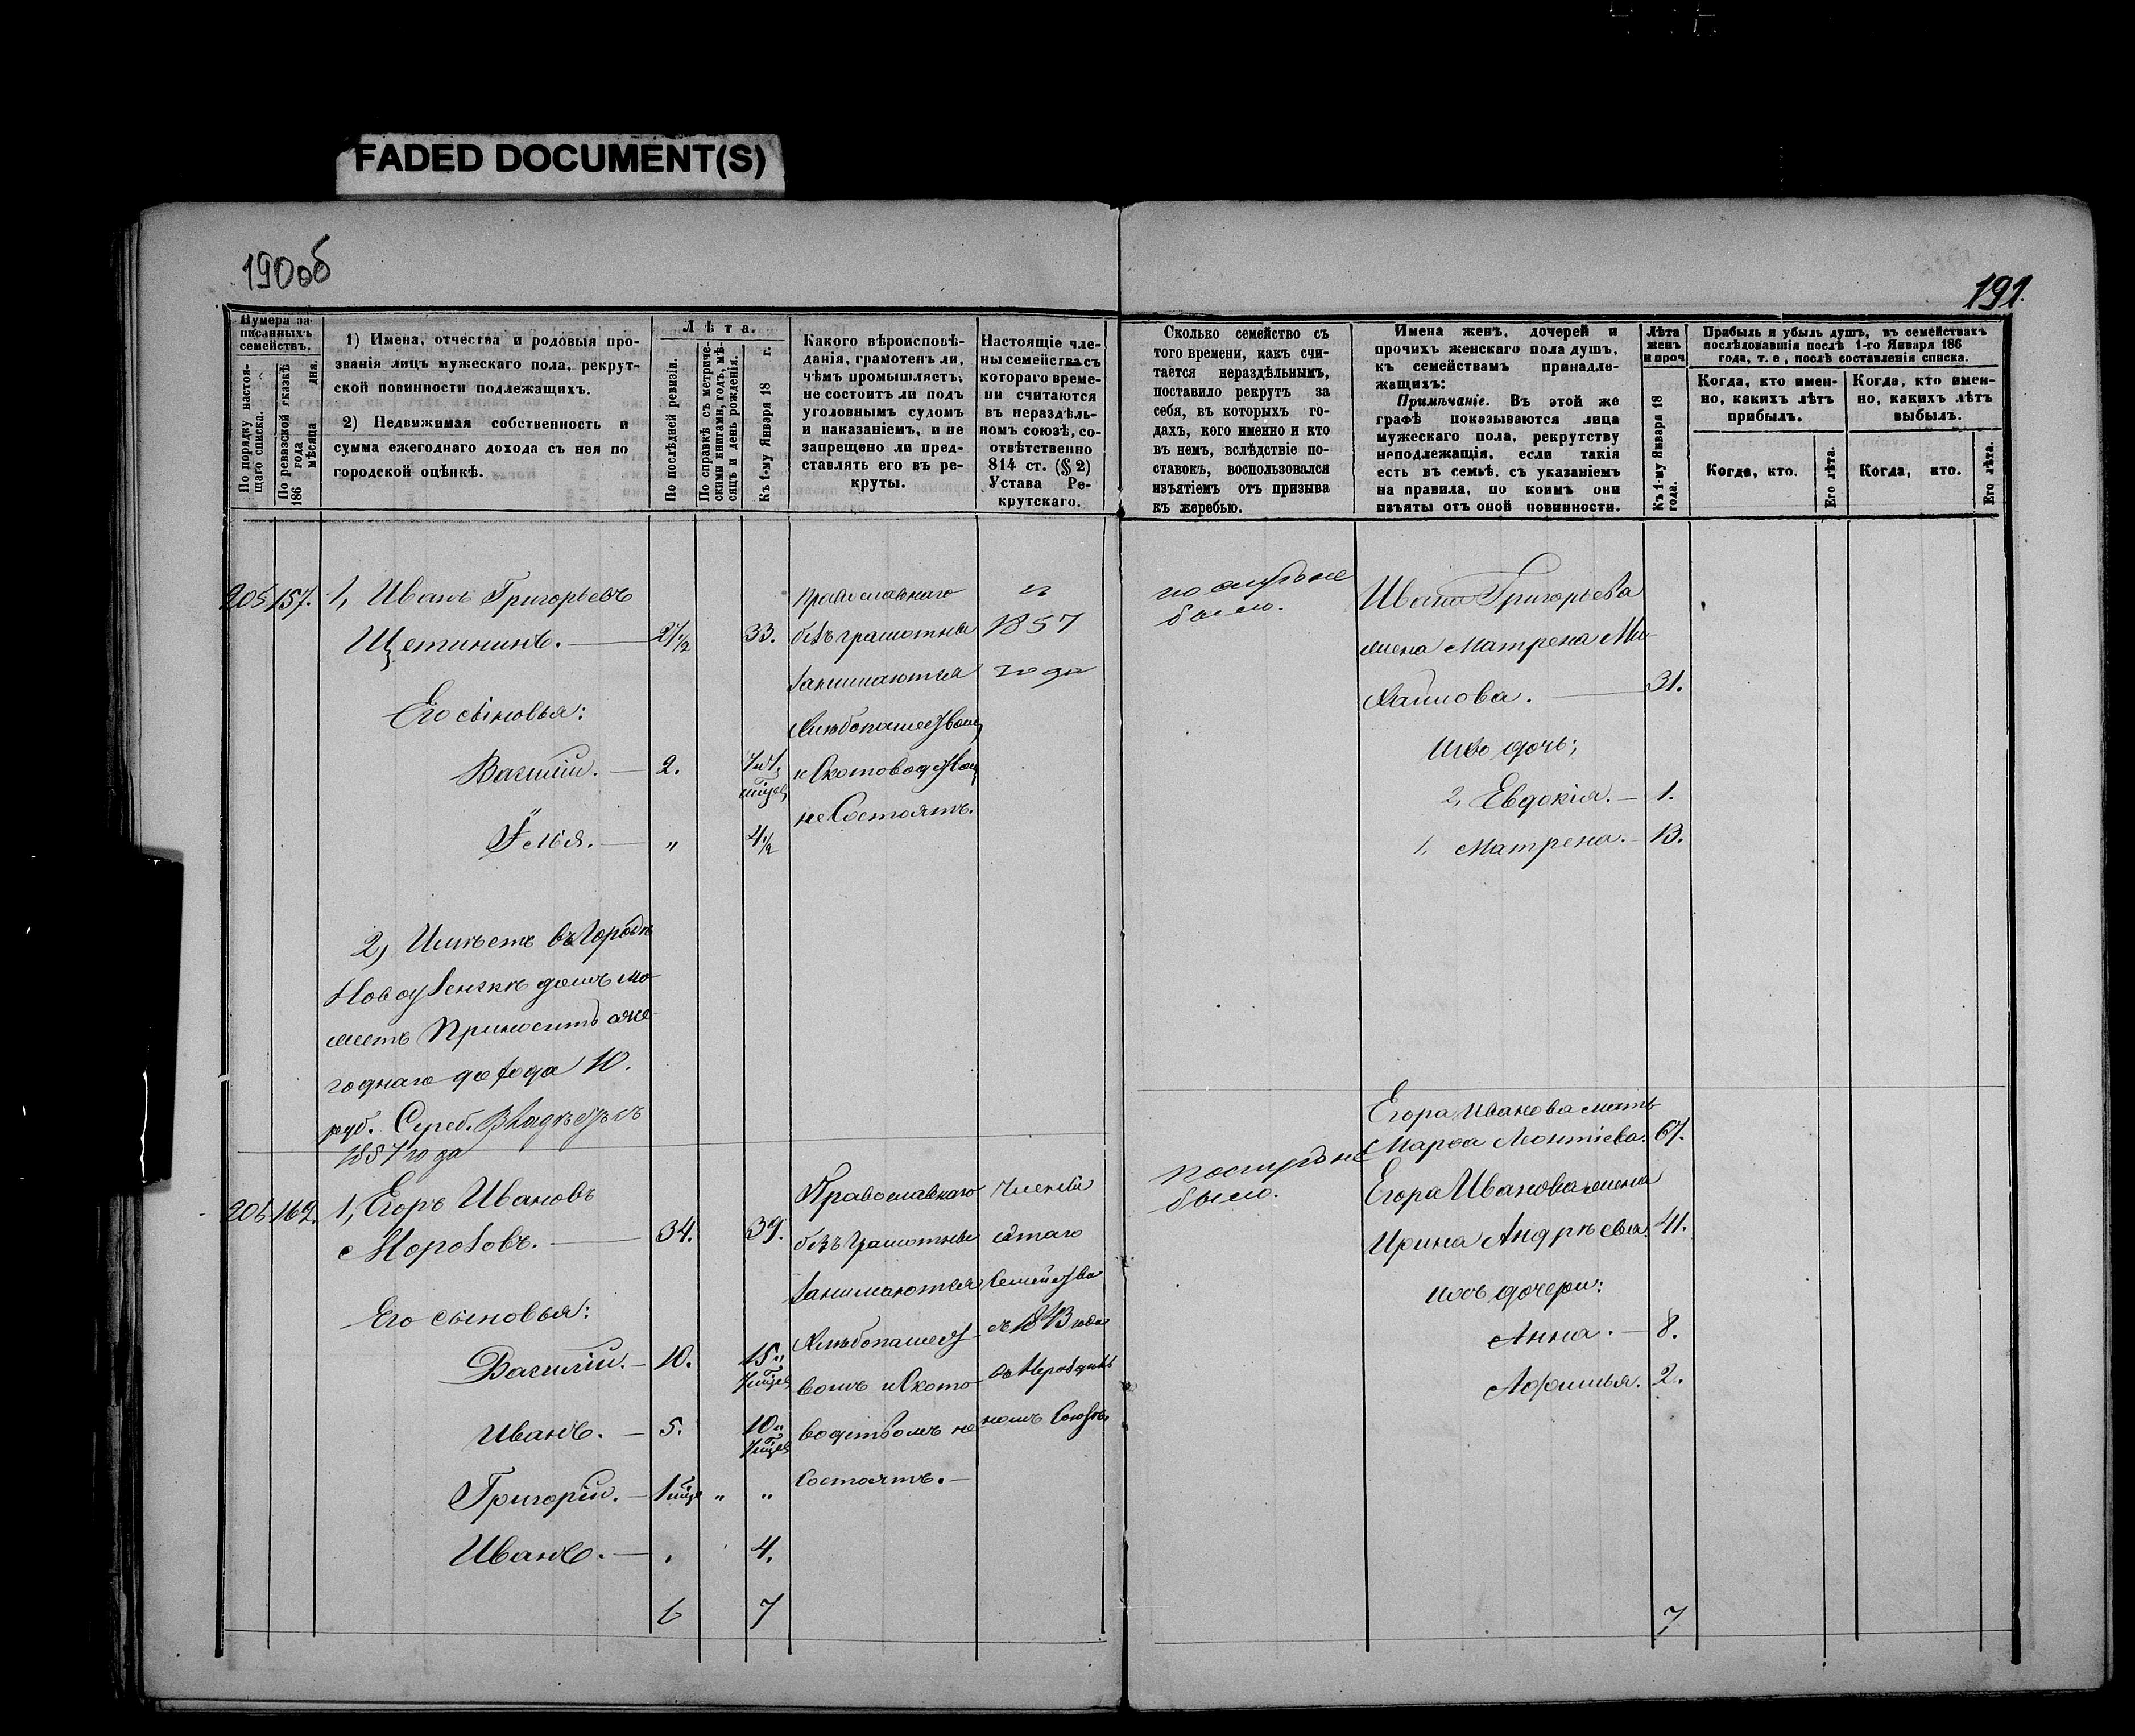 FADED DOCUMENT(S)
190об
191.
Нумера за-
писанныхъ
семействъ.
По порядку настоя-
щаго списка.
По ревизской сказкѣ
186 года
мѣсяца дня.
1) Имена, отчества и родовыя про-
званія лицъ мужескаго пола, рекрут-
ской повинности подлежащихъ.
2) Недвижимая собственность и
сумма ежегоднаго дохода съ нея по
городской оцѣнкѣ.
Лѣта.
По послѣдней ревизіи.
По справкѣ съ метриче-
скими книгами, годъ, мѣ-
сяцъ и день рожденія.
Къ 1-му Января 18 г.
Какого вѣроисповѣ-
данія, грамотенъ ли,
чѣмъ промышляетъ,
не состоитъ ли подъ
уголовнымъ судомъ
и наказаніемъ, и не
запрещено ли пред-
ставлять его въ ре-
круты.
Настоящіе чле-
ны семейства съ
котораго време-
ни считаются
въ нераздѣль-
номъ союзѣ, со-
отвѣтственно
814 ст. (§ 2)
Устава Ре-
крутскаго.
Сколько семейство съ
того времени, какъ счи-
тается нераздѣльнымъ,
поставило рекрутъ за
себя, въ которыхъ го-
дахъ, кого именно и кто
въ немъ, вслѣдствіе по-
ставокъ, воспользовался
изъятіемъ отъ призыва
къ жеребью.
Имена женъ, дочерей и
прочихъ женскаго пола душъ,
къ семействамъ принадле-
жащихъ:
Примѣчаніе. Въ этой же
графѣ показываются лица
мужескаго пола, рекрутству
неподлежащія, если такія
есть въ семьѣ, съ указаніемъ
на правила, по коимъ они
изъяты отъ оной повинности.
Лѣта
женъ
и проч
Къ 1-му Января 18
года.
Прибыль и убыль душъ, въ семействахъ
послѣдовавшія послѣ 1-го Января 186
года, т. е, послѣ составленія списка.
Когда, кто имен-
но, какихъ лѣтъ
прибылъ.
Когда, кто.
Его лѣта.
Когда, кто имен-
но, какихъ лѣтъ
выбылъ.
Когда, кто.
Его лѣта.
205. 157. 1, Иванъ Григорьевъ
Щетининъ. 27 1/2 33.
Его сыновья:
Василій. 2.
Илья. " 4 1/2
2, Имѣетъ въ Городѣ
Новоузенскѣ домъ мо-
жетъ приносить еже-
годнаго дохода 10.
руб. Сереб. Владѣетъ съ
1857 года
Православнаго
безъ грамотны
занимаются
хлѣбопашеством
и Скотоводством
не Состоятъ.
съ
1857
года
было.
Ивана Григорьева
жена Матрена Ми-
хайлова. 31.
Ихъ дочь;
2, Евдокія. 1.
1, Матрена. 13.
206. 162. 1, Егоръ Ивановъ
Морозовъ. 34. 39.
Его сыновья:
Василій. 10. 15 и
7 мѣс
Иванъ. 5. 10 и
7 мѣс
Григорій. 1 " "
Иванъ. 4.
6 7
Православнаго
безъ Грамотны
занимаются
Хлѣбопашест-
вомъ и Ското-
водствомъ не
Состоятъ.
Члены
Семейства
съ 1843 года
номъ Союзѣ
было.
Егора Иванова мать
Марѳа Леонтіева. 67.
Егора Иванова жена
Ирина Андрѣева. 41.
Ихъ дочери:
Анна. 8.
Афимья. 2.
7